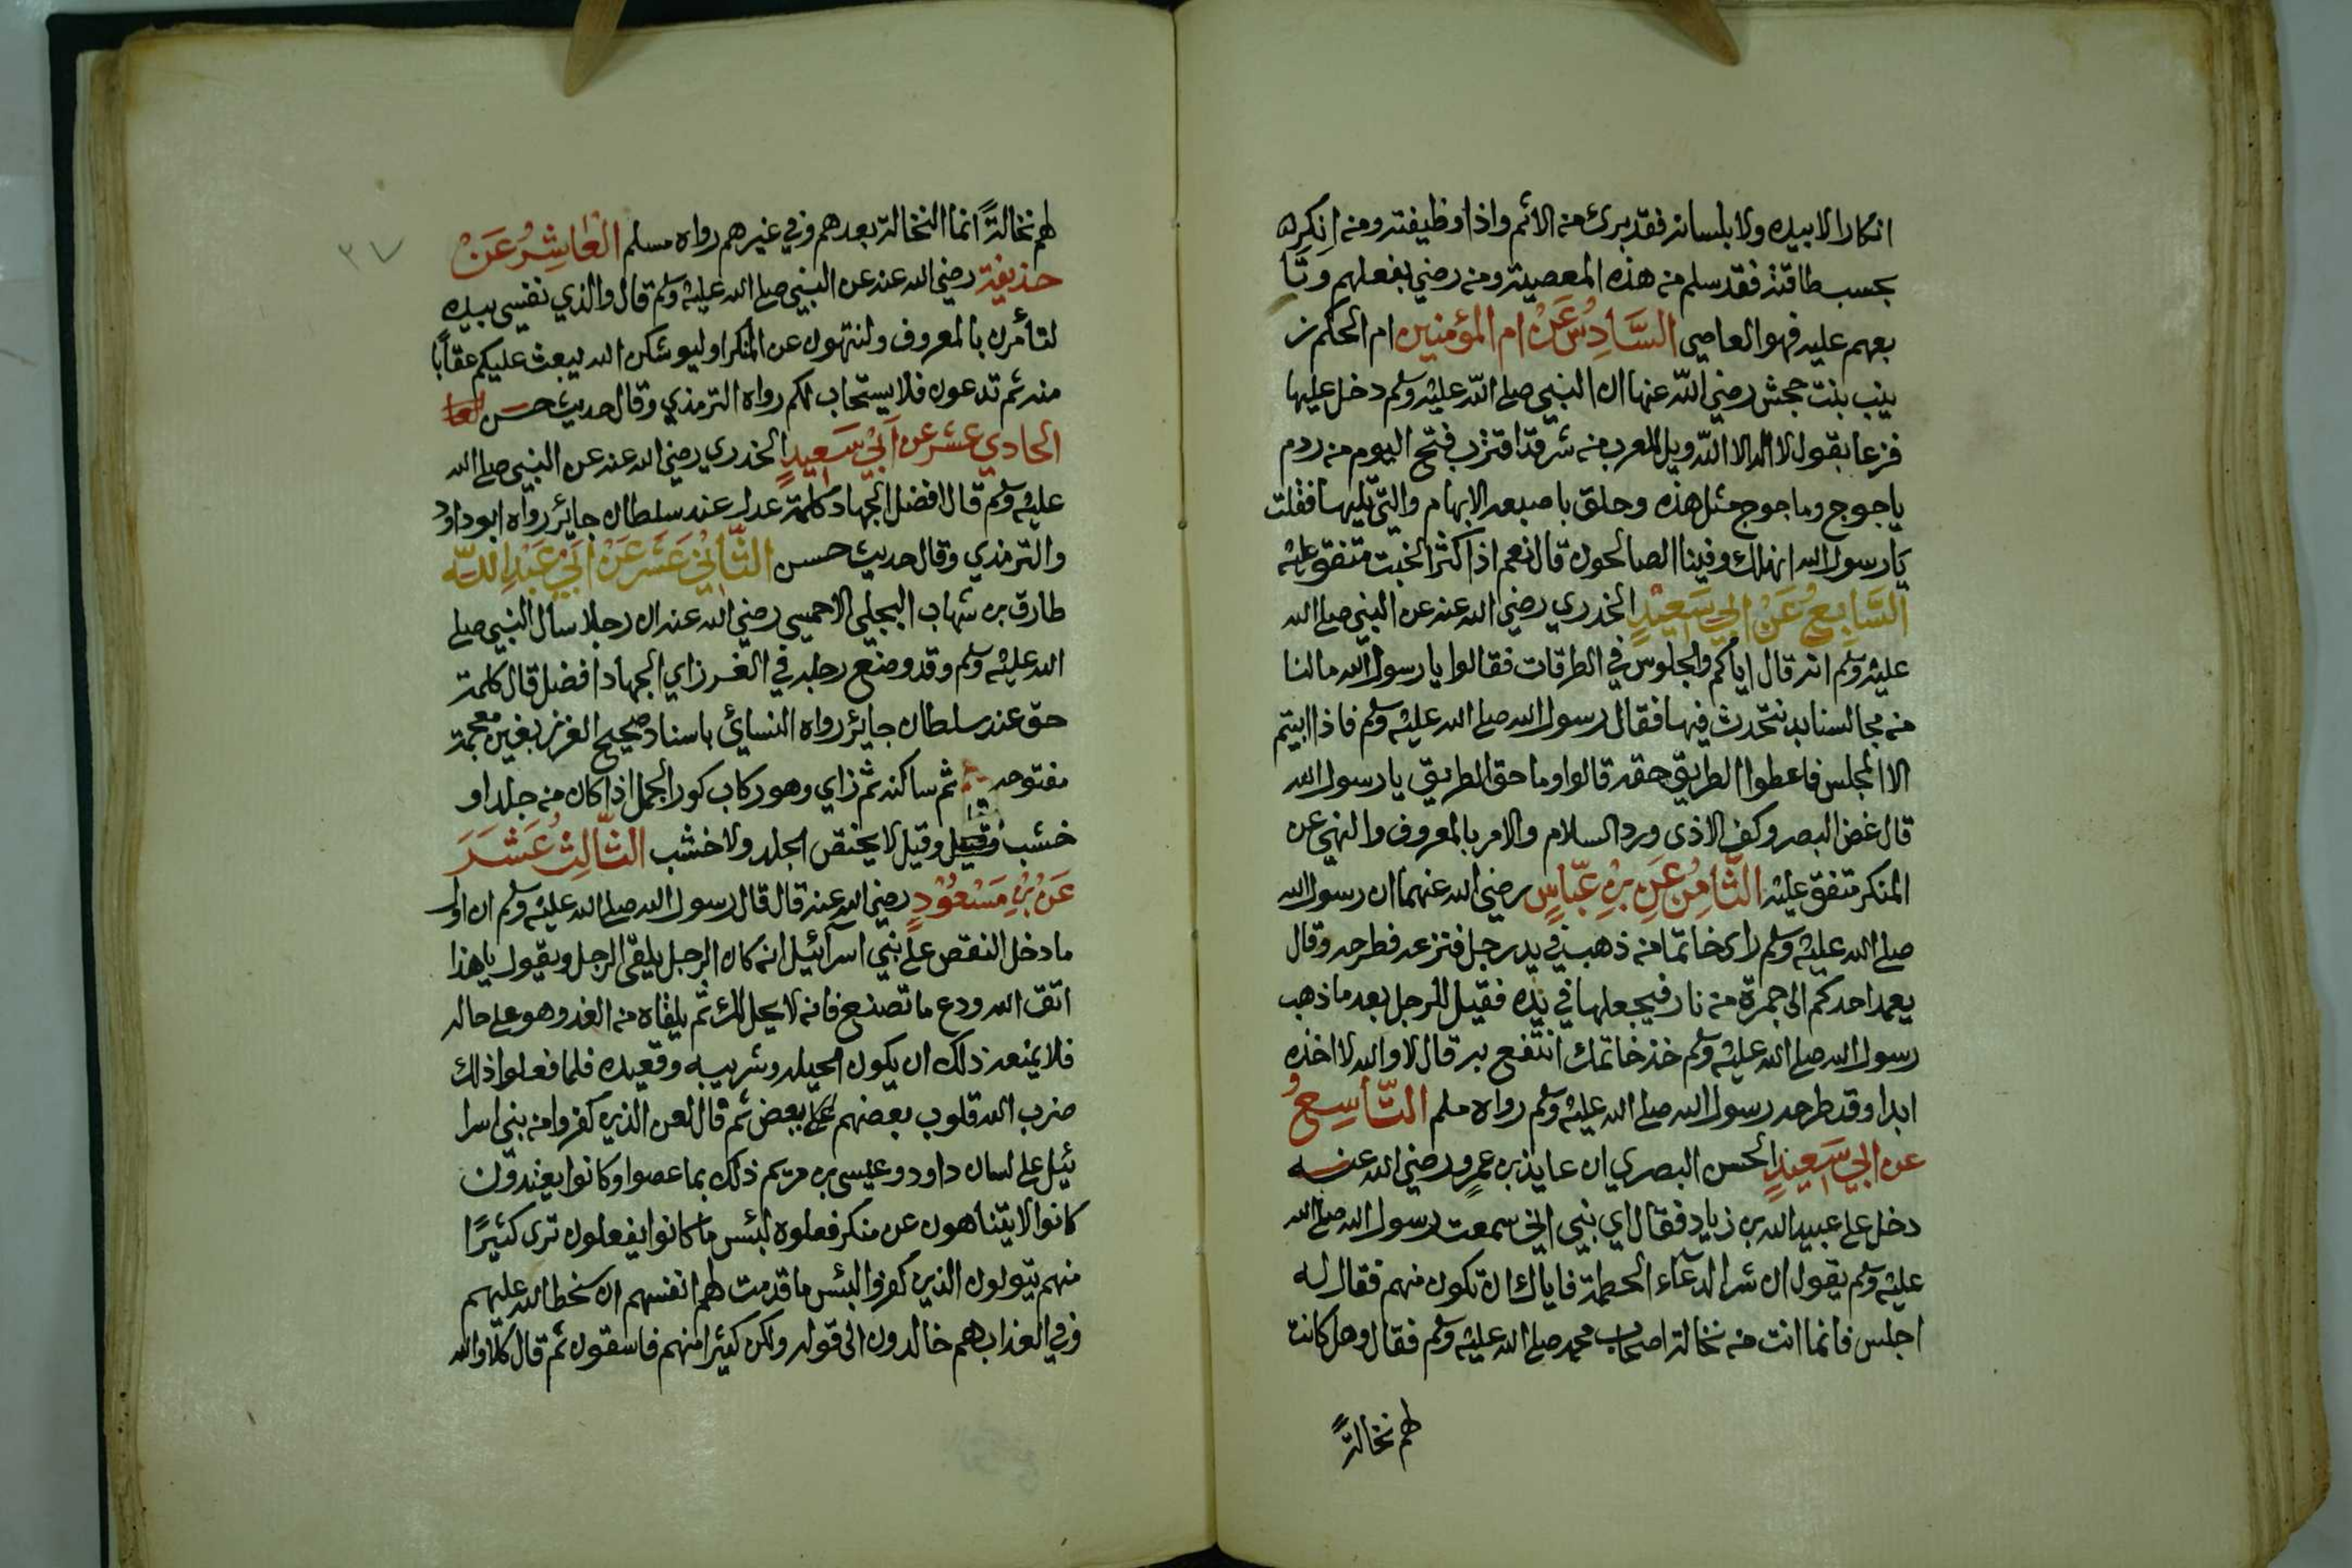 انكارا لا بيده ولا بلسانه فقد برئ من الاثم واذا وظيفته ومن انكره
بحسب طاقته فقد سلم من هذه المعصية ومن رضي بفعلهم وتا
بعهم عليه فهو العاصي السَّادِسُ عَنْ ام المؤمنين ام الحكم ز
ينب بنت جحش رضي الله عنها ان النبي صلى الله عليه وسلم دخل عليها
فزعا يقول لا اله الا الله ويل للعرب من شر قد اقترب فتح اليوم من ردم
ياجوج وماجوج مثل هذه وحلق باصبعه الابهام والتي تليها فقلت
يارسول الله انهلك وفينا الصالحون قال نعم اذا كثر الخبث متفق عليه
السَّابِعُ عَنْ ابي سَعِيْدٍ الخدري رضي الله عنه عن النبي صلى الله
عليه وسلم انه قال اياكم والجلوس في الطرقات فقالوا يا رسول الله مالنا
من مجالسنا بد نتحدث فيها فقال رسول الله صلى الله عليه وسلم فاذا ابيتم
الا المجلس فاعطوا الطريق حقه قالوا وما حق الطريق يا رسول الله
قال غض البصر وكف الاذى ورد السلام والامر بالمعروف والنهي عن
المنكر متفق عليه الثَّامِنُ عَنِ بْنِ عبَّاسٍ رضي الله عنهما ان رسول الله
صلى الله عليه وسلم راى خاتما من ذهب في يد رجل فنزعه فطرحه وقال
يعمد احدكم الى جمرة من نار فيجعلها في يده فقيل للرجل بعد ما ذهب
رسول الله صلى الله عليه وسلم خذ خاتمك انتفع به قال لا والله لا اخذه
ابدا وقد طرحه رسول الله صلى الله عليه وسلم رواه ملم التَّاسِعُ
عن ابي سَعِيدٍ الحسن البصري ان عايذ بن عمرو رضي الله عنه
دخل على عبيد الله بن زياد فقال اي بني اني سمعت رسول الله صلى الله
عليه وسلم يقول ان شر الدعاء الحطمة فاياك ان تكون منهم فقال له
اجلس فانما انت من نخالة اصحاب محمد صلى الله عليه وسلم فقال وهل كانت
لهم نخالةً
٣٧
لهم نخالةً انما النخالة بعدهم وفي غيرهم رواه مسلم العَاشِرُ عَنْ
حذيفة رضي الله عنه عن النبي صلى الله عليه وسلم قال والذي نفسي بيده
لتأمرن بالمعروف ولتنهون عن المنكر او ليوشكن الله يبعث عليكم عقابًا
منه ثم تدعون فلا يستجاب لكم رواه الترمذي وقال حديث حسن العا
الحادي عشر عن أَبيْ سَعِيدٍ الخدري رضي الله عنه عن النبي صلى الله
عليه وسلم قال افضل الجهاد كلمة عدل عند سلطان جاير رواه ابو داود
والترمذي وقال حديث حسن الثَّانِيْ عَشَرَ عَنْ أبَيْ عَبْدِاللَّه
طارق بن شهاب البجلي الاحمسي رضي الله عنه ان رجلا سال النبي صلى
الله عليه وسلم وقد وضع رجله في الغرز اي الجهاد افضل قال كلمة
حق عند سلطان جاير رواه النسائي باسناد صحيح الغرز بغين معجمة
مفتوحه ثم ساكنه ثم زاي وهو ركاب كور الجمل اذا كان من جلد او
خشب وقيل وقيل لا يختص بجلد ولا خشب الثَّالِثُ عَشَرَ
عَنْ بْنِ مَسْعُوْدٍ رضي الله عنه قال قال رسول الله صلى الله عليه وسلم ان اول
ما دخل النقص على بني اسرآئيل انه كان الرجل يلقى الرجل ويقول ياهذا
اتق الله ودع ما تصنع فانه لا يحل لك ثم يلقاه من الغد وهو على حاله
فلا يمنعه ذلك ان يكون اكيله وشريبه وقعيده فلما فعلوا ذلك
ضرب الله قلوب بعضهم على بعض ثم قال لعن الذين كفروا من بني اسرا
ئيل على لسان داود وعيسى بن مريم ذلك بما عصوا وكانوا يعتدون
كانوا لا يتناهون عن منكر فعلوه لبئس ما كانوا يفعلون ترى كثيرًا
منهم يتولون الذين كفروا لبئس ما قدمت لهم انفسهم ان سخط الله عليهم
وفي العذاب هم خالدون الى قوله ولكن كثيرا منهم فاسقون ثم قال كلا والله